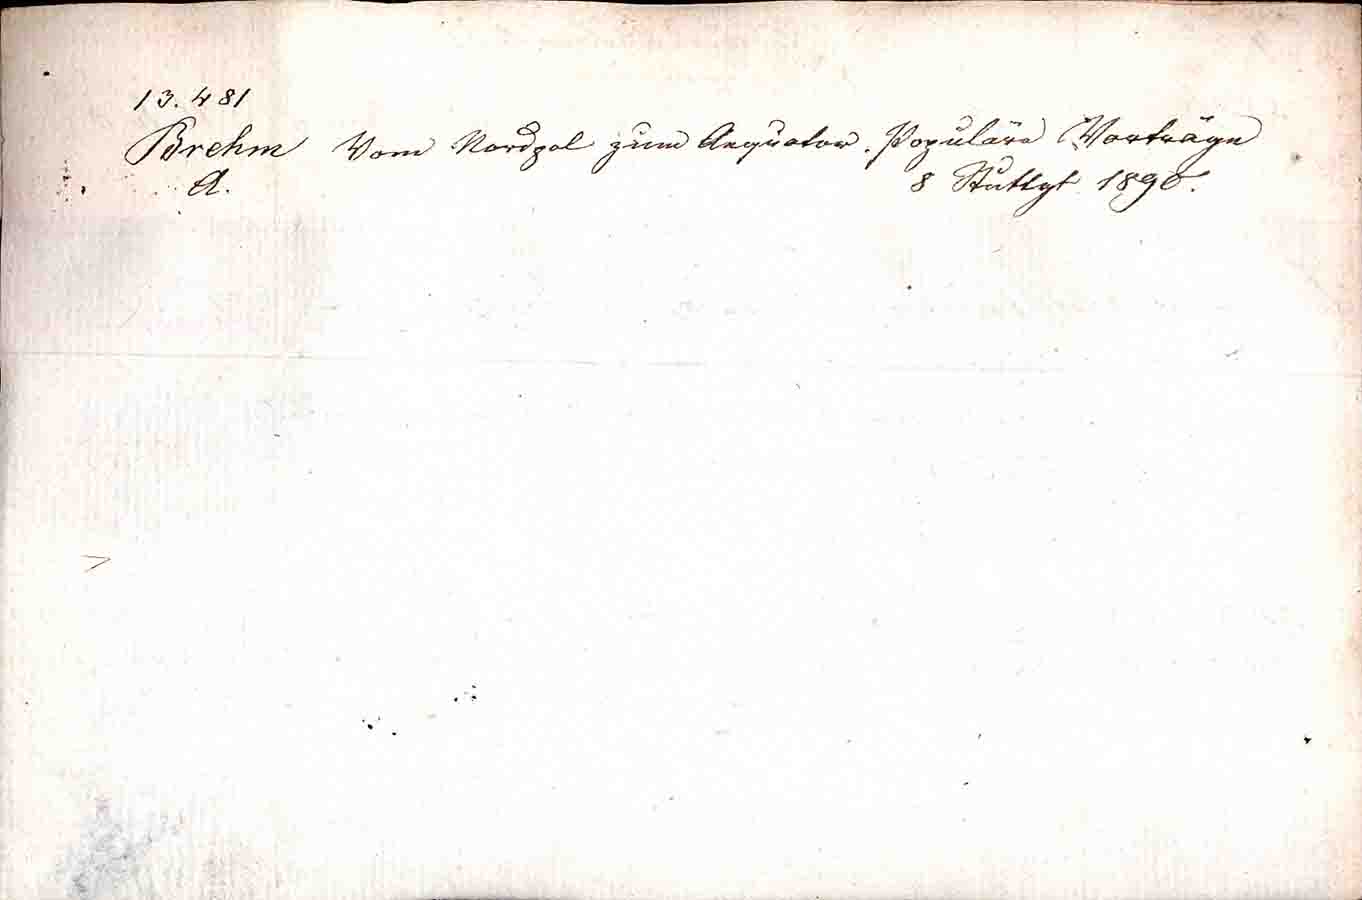 13.481
Brehm Vom Nordpol zum Aequator. Populäre Vorträge
A. 8 Stuttgt 1890.